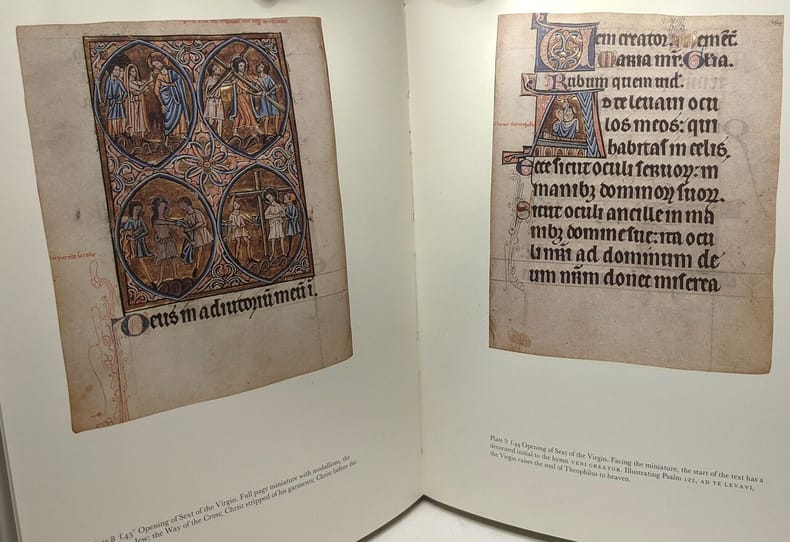 Deus in adiutoriu meu i.
Plate 8 f.43v Opening of Sext of the Virgin. Full page miniature with medallions, the
Jew; the Way of the Cross; Christ stripped of his garments; Christ before the
em creator. mem̄t.
Maria mr̄. Glīa.
Rubum quem uid̄.
Ad te leuaui ocu
los meos: qui
habitas in celis.
Ecce sicut oculi seruoꝝ: in
manibꝫ dominoꝝ suoꝝ.
Sicut oculi ancille in ma
nibꝫ domine sue: ita ocu
li nr̄i ad dominum de
um nr̄m donec miserea
Plate 9 f.44 Opening of Sext of the Virgin. Facing the miniature, the start of the text has a
decorated initial to the hymn VENI CREATOR. Illustrating Psalm 122, AD TE LEVAVI,
the Virgin raises the soul of Theophilus to heaven.